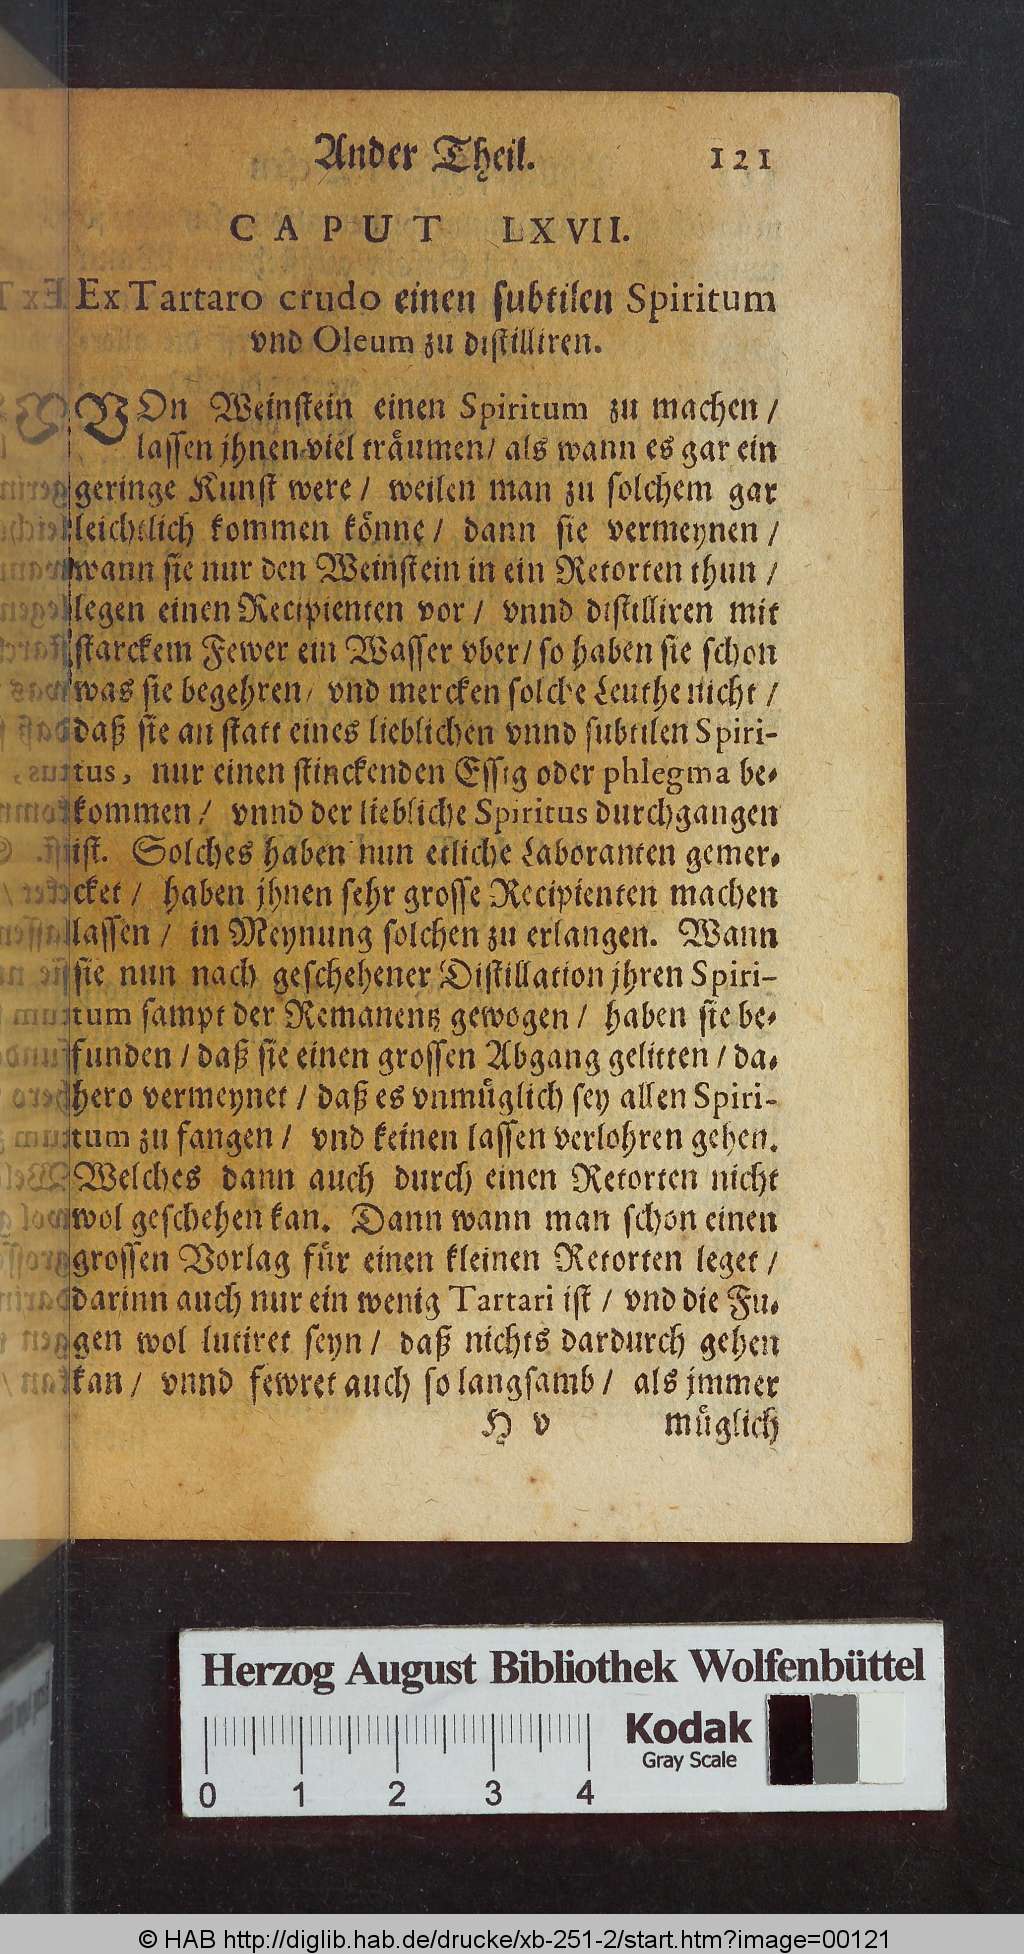 Ander Theil. 121
CAPUT LXVII.
Ex Tartaro crudo einen subtilen Spiritum
vnd Oleum zu distilliren.
VOn Weinstein einen Spiritum zu machen /
lassen jhnen viel träumen / als wann es gar ein
geringe Kunst were / weilen man zu solchem gar
leichtlich kommen könne / dann sie vermeynen /
wann sie nur den Weinstein in ein Retorten thun /
legen einen Recipienten vor / vnnd distilliren mit
starckem Fewer ein Wasser vber / so haben sie schon
was sie begehren / vnd mercken solche Leuthe nicht /
daß sie an statt eines lieblichen vnnd subtilen Spiri-
tus, nur einen stinckenden Essig oder phlegma be-
kommen / vnnd der liebliche Spiritus durchgangen
ist. Solches haben nun etliche Laboranten gemer-
cket / haben jhnen sehr grosse Recipienten machen
lassen / in Meynung solchen zu erlangen. Wann
sie nun nach geschehener Distillation jhren Spiri-
tum sampt der Remanentz gewogen / haben sie be-
funden / daß sie einen grossen Abgang gelitten / da-
hero vermeynet / daß es vnmüglich sey allen Spiri-
tum zu fangen / vnd keinen lassen verlohren gehen.
Welches dann auch durch einen Retorten nicht
wol geschehen kan. Dann wann man schon einen
grossen Vorlag für einen kleinen Retorten leget /
darinn auch nur ein wenig Tartari ist / vnd die Fu-
gen wol lutiret seyn / daß nichts dardurch gehen
kan / vnnd fewret auch so langsamb / als jmmer
H v müglich
Herzog August Bibliothek Wolfenbüttel
Kodak
Gray Scale
0 1 2 3 4
© HAB http://diglib.hab.de/drucke/xb-251-2/start.htm?image=00121